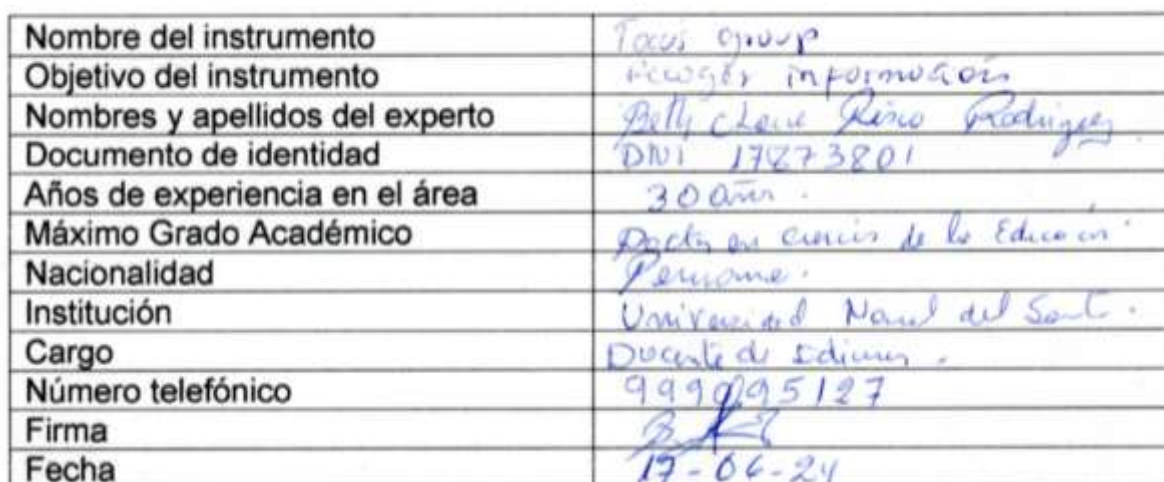 Nombre del instrumento Focus group
Objetivo del instrumento Recoger información
Nombres y apellidos del experto Betty Risco Rodríguez
Documento de identidad DNI 17873801
Años de experiencia en el área 30 años.
Máximo Grado Académico Doctor en Ciencias de la Educación.
Nacionalidad Peruana.
Institución Universidad Nacnal del Santa.
Cargo Docente de Idiomas.
Número telefónico 999095127
Firma
Fecha 17-06-24